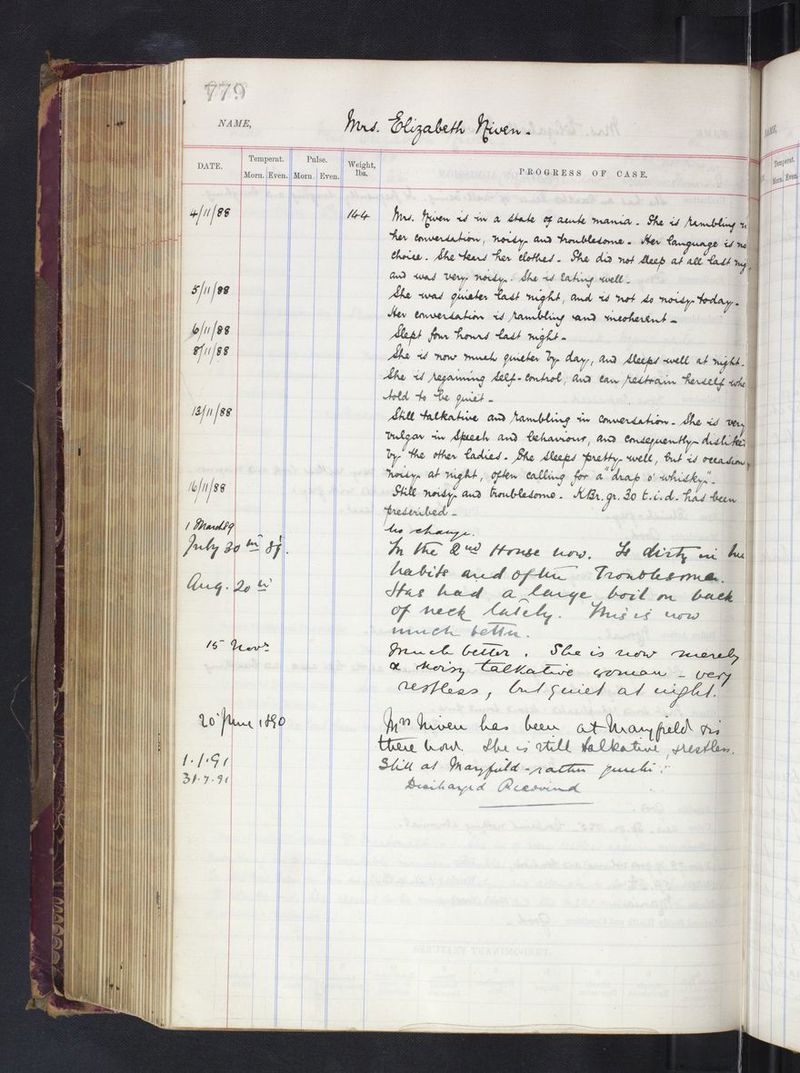 779
NAME, Mrs. Elizabeth Niven.
DATE. Temperat. Pulse. Weight, lbs. PROGRESS OF CASE.
Morn. Even. Morn. Even.
4/11/88 144 Mrs. Niven is in a state of acute mania. She is rambling in
her conversation, noisy and troublesome. Her language is no
choice. She tears her clothes. She did not sleep at all last nig
and was very noisy. She is eating well.
5/11/88 She was quieter last night, and is not so noisy today.
Her conversation is rambling and incoherent.
6/11/88 Slept four hours last night.
8/11/88 She is now much quieter by day, and sleeps well at night.
She is regaining self-control, and can restrain herself whe
told to be quiet.
13/11/88 Still talkative and rambling in conversation. She is very
vulgar in speech and behaviour, and consequently disliked
by the other ladies. She sleeps pretty well, but is occasion
noisy at night, often calling for a "drap o' whisky".
16/11/88 Still noisy and troublesome. KBr. gr. 30 t.i.d. has been
prescribed.
1 March 89 No change.
July 30th 89. In the 2nd House now. Is dirty in her
habits and often troublesome.
Aug. 20th Has had a large boil on back
of neck lately. This is now
much better.
15 Novr Much better. She is now merely
a noisy talkative woman - very
restless, but quiet at night.
20 June 1890 Mrs Niven has been at Maryfield & is
there now. She is still talkative, & restless.
1.1.91 Still at Maryfield - rather
31.7.91 Discharged Recovered